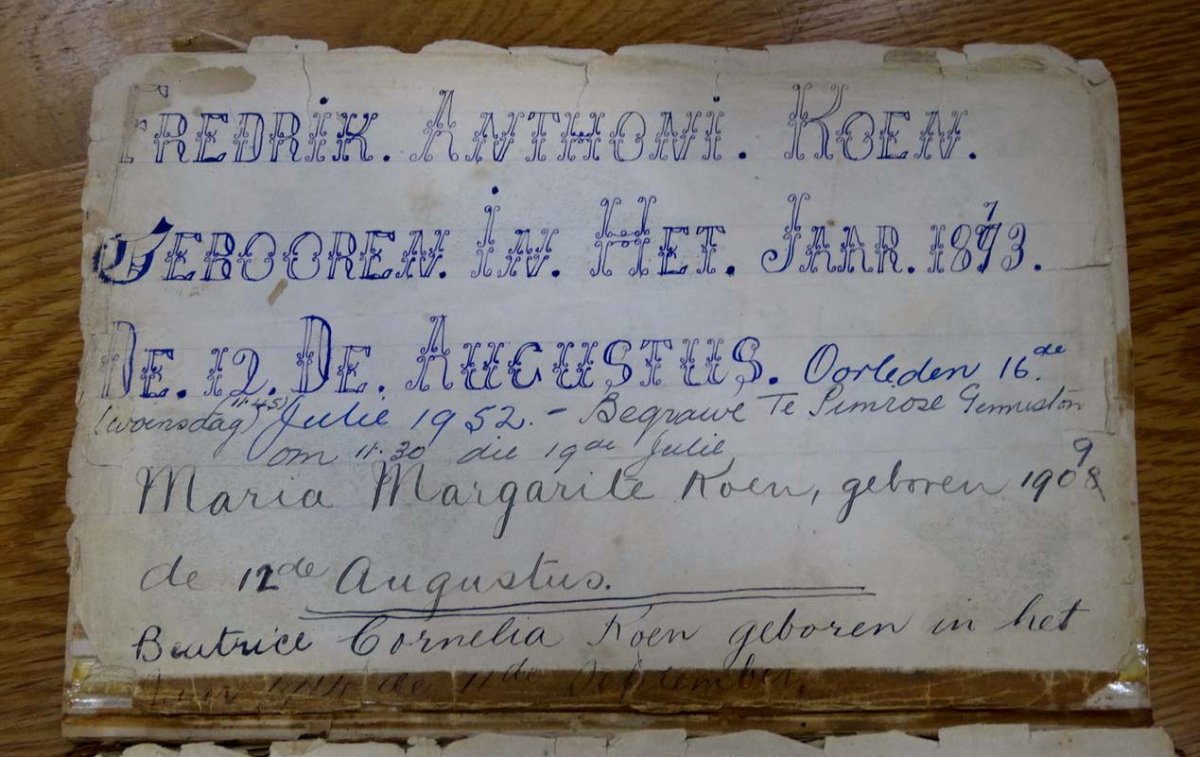 FREDRIK. ANTHONI. KOEN.
GEBOOREN. IN. HET. JAAR. 1873. 7
DE. 12. DE. AUGUSTUS. Oorleden 16.de
(woensdag 11.45) Julie 1952. - Begrawe Te Pimrose Germiston
om 11.30 die 19de Julie
Maria Margarite Koen, geboren 1908 9
de 12de Augustus.
Beatrice Cornelia Koen geboren in het
de 11de September.